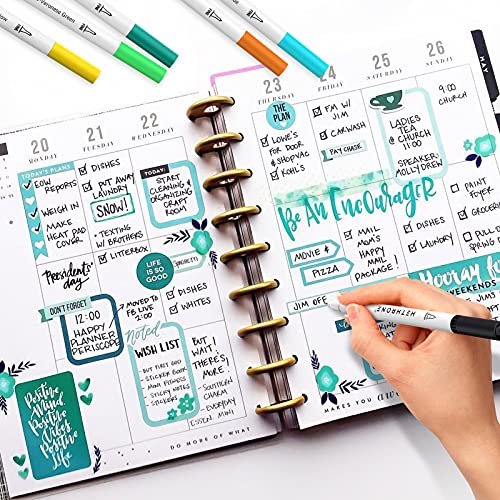 Veronese Green
20
MONDAY
21
TUESDAY
22
WEDNESDAY
23
THURSDAY
24
FRIDAY
25
SATURDAY
26
SUNDAY
MAY
TODAY'S PLANS
EOW
REPORTS
WEIGH IN
MAKE
HEAT PAD
COVER
DISHES
PUT AWAY
LAUNDRY
SNOW!
TEXTING
W/ BROTHERS
LITTERBOX
TODAY:
START
CLEANING &
ORGANIZING
CRAFT
ROOM
THE
PLAN
LOWE'S
FOR DOOR
& SHOPVAC
KOHL'S
FM W/
JIM
CARWASH
PAY CHASE
LADIES
TEA @
CHURCH
11:00
SPEAKER:
MOLLY DREW
9:00
CHURCH
BE AN ENCOURAGER
PRESIDENTS'
DAY
LIFE IS
SO GOOD
SPAGHETTI
MOVIE &
PIZZA
MAIL
MOM'S
HAPPY
MAIL
PACKAGE!
DISHES
LAUNDRY
PAINT
FOYER
GROCERIES
PULL
SPRING
DON'T FORGET
12:00
HAPPY
PLANNER
PERISCOPE
MOVED TO
FB LIVE
2:00
DISHES
WHITES
JIM OFF
METRONG
HOORAY for
WEEKENDS
noted
WISH LIST
- BUT FIRST GOD
STICKER BOOK
- MINI FITNESS
- STICKY NOTES
- STICKERS
BUT,
WAIT!
THERE'S
MORE...
- SOUTHERN
CHARM
- EVERYDAY
ESSEN. MINI
Positive
Mind
Positive
Vibes
Positive
Life
DO MORE OF WHAT
MAKES YOU